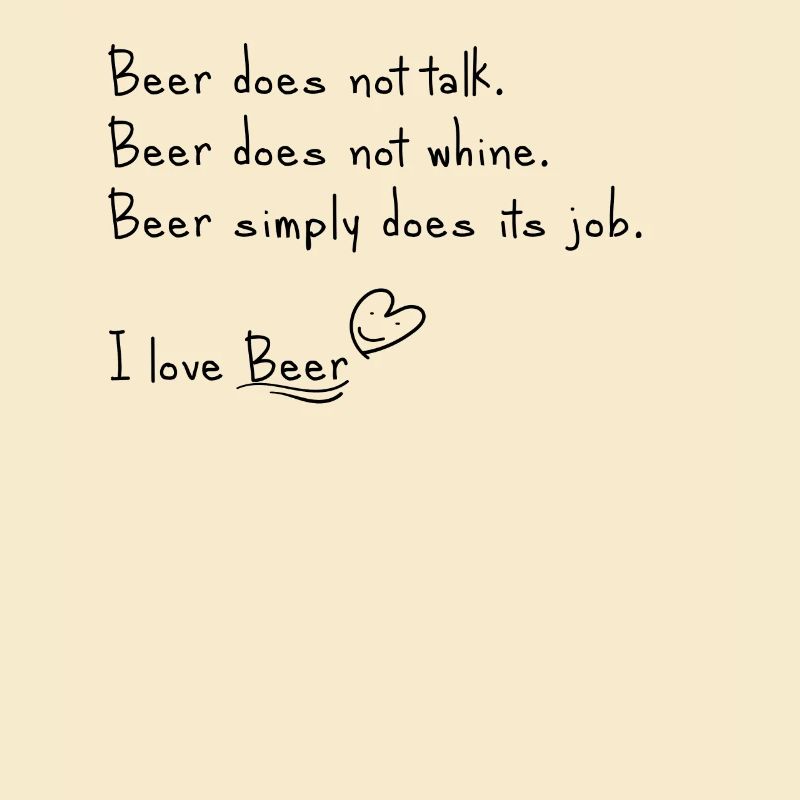 Beer does not talk.
Beer does not whine.
Beer simply does its job.
I love Beer